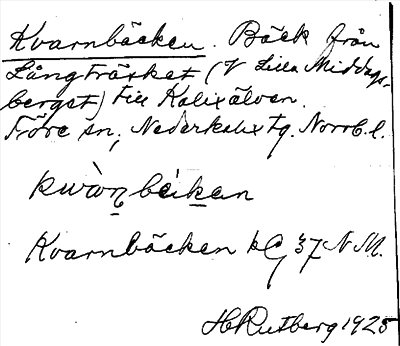 Kvarnbäcken. Bäck från
Långträsket (V Lilla Middags-
berget) till Kalixälven.
Töre sn, Nederkalix tg. Norrb. l.
Kvarnbäcken kG 37 N SM.
H Rutberg 1925